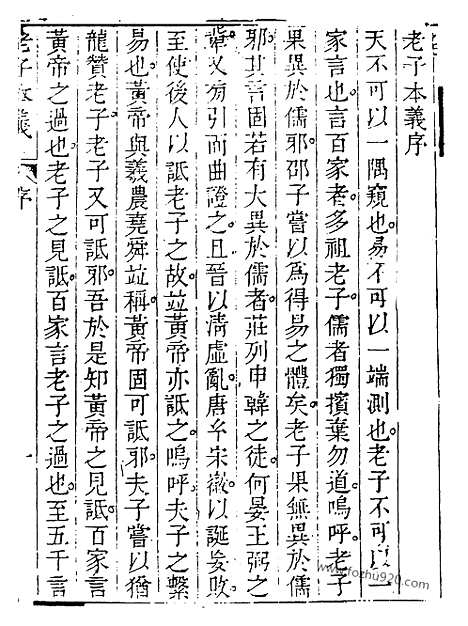 老子本義序
天不可以一隅窺也。易不可以一端測也。老子不可以一
家言也。言百家者。多祖老子。儒者獨擯棄勿道。嗚呼。老子
果異於儒邪。邵子嘗以爲得易之體矣。老子果無異於儒
邪。其言固若有大異於儒者。莊列申韓之徒。何晏王弼之
輩。又旁引而曲證之。且晉以淸虛亂。唐幺宋徽。以誕妄敗。
至使後人以詆老子之故。竝黃帝亦詆之。嗚呼。夫子之繫
易也。黃帝與羲農堯舜竝稱。黃帝固可詆邪。夫子嘗以猶
龍贊老子。老子又可詆邪。吾於是知黃帝之見詆。百家言
黃帝之過也。老子之見詆。百家言老子之過也。至五千言
老子本義
序
一
www.fozhu920.com